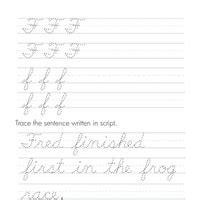 F F F
F F F
f f f
f f f
Trace the sentence written in script.
Fred finished
first in the frog
race.